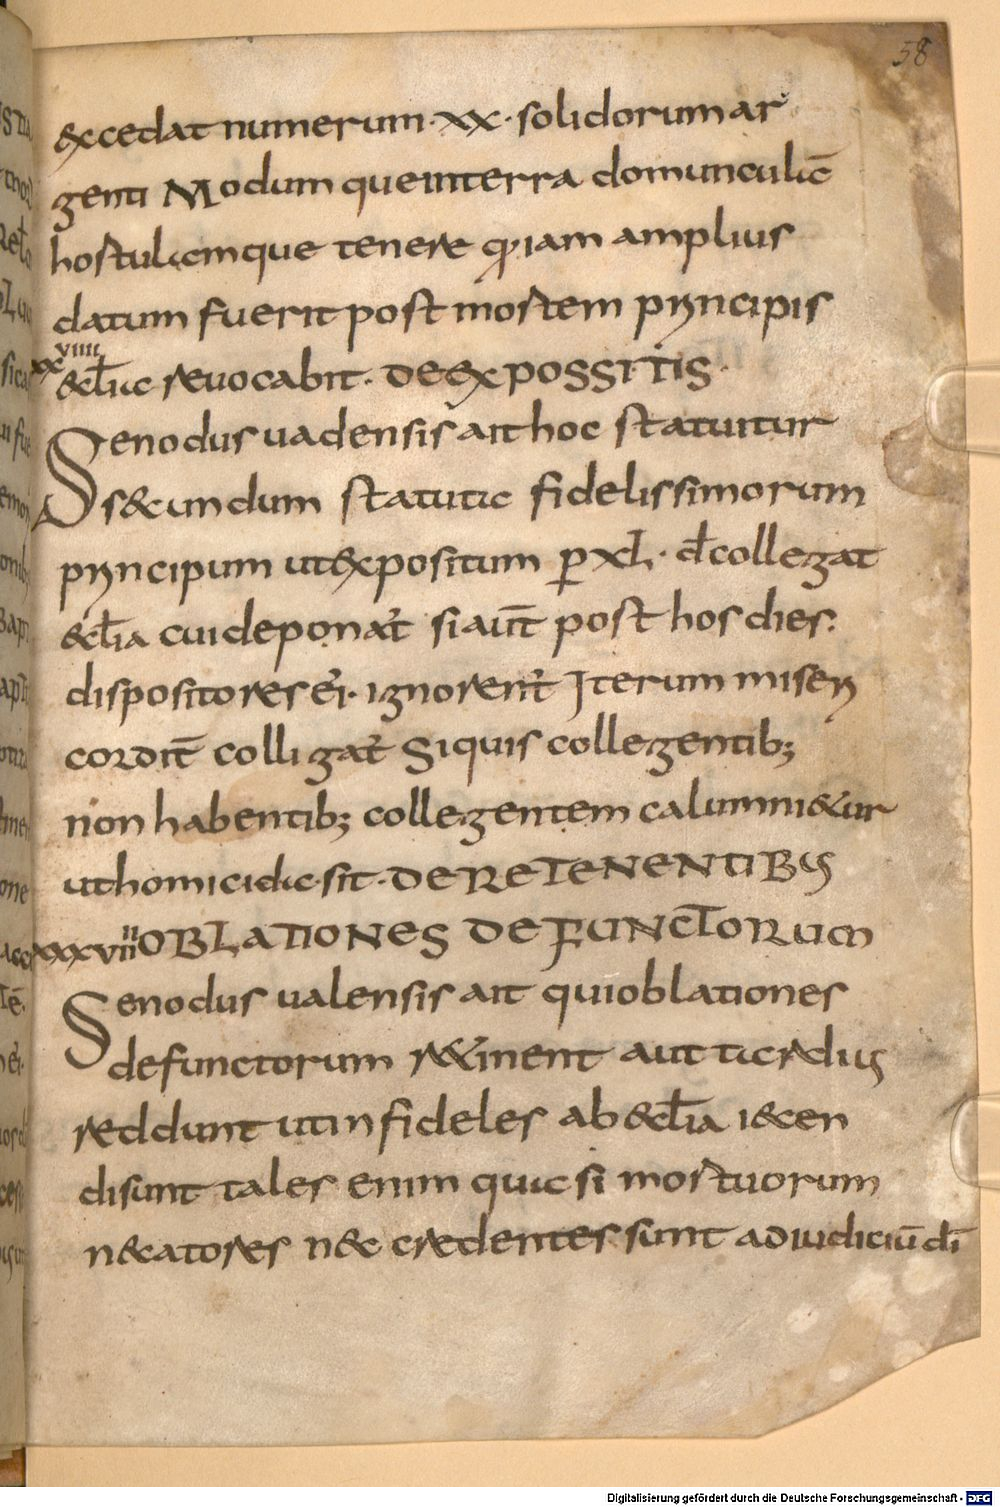 58
excedat numerum · xx · solidorum ar
genti Modum queinterra domunculā
hostulamque tenere q·iam amplius
datum fuerit post mortem principis
xxviiii
&cl̄ia revocabit · DE EXPOSSITIS ·
Senodus uadensis ait hoc statuitur
s&undum statuta fidelissimorum
principum utexpositum p̱ xL · d̄collegat
&cl̄ia cuideponat̄ siaūt post hos dies :
dispositores ei · ignorent̄ Iterum miseri
cordit̄ colligat̄ Siquis collegentib;
non habentib; collegentem calumni&ur
uthomicida sit · DE RETENENTIBUS
xxxvıııı OBLATIONES DEFUNCTORUM
Senodus ualensis ait quioblationes
defunctorum r&inent aut tardius
reddunt utinfideles ab &cl̄ia iacen
disunt tales enim quasi mortuorum
necatores nec credentes sunt ad iudiciū dī
Digitalisierung gefördert durch die Deutsche Forschungsgemeinschaft - DFG